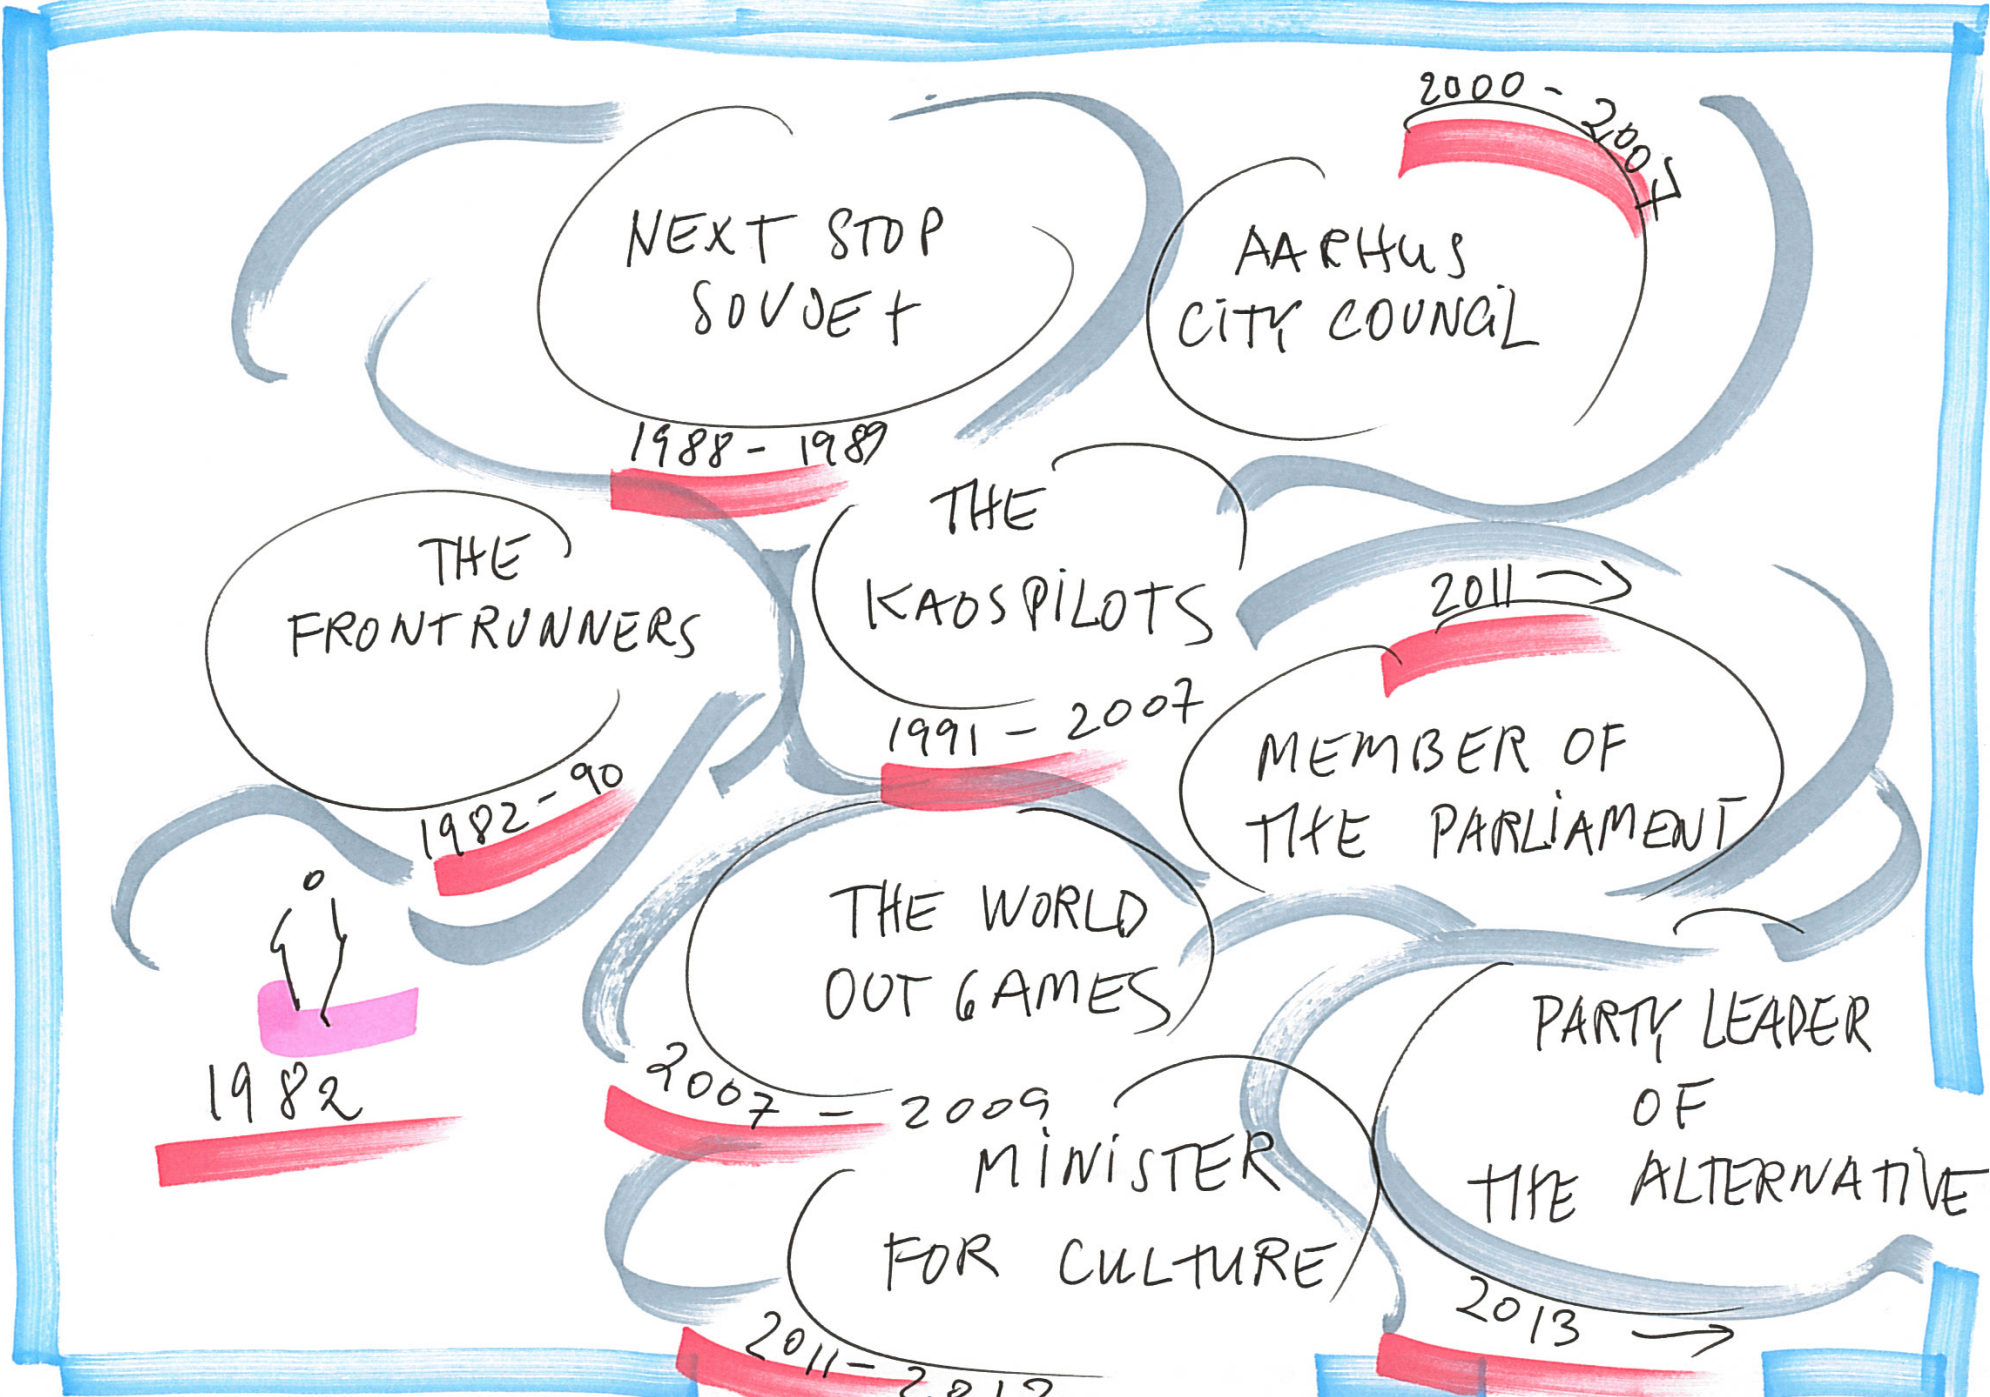 NEXT STOP
SOVJET
1988 - 1989
2000 - 2007
AARHUS
CITY COUNCIL
THE
FRONTRUNNERS
1982 - 90
THE
KAOSPILOTS
1991 - 2007
2011 →
MEMBER OF
THE PARLIAMENT
1982
THE WORLD
OUT GAMES
2007 - 2009
MINISTER
FOR CULTURE
2011 -
PARTY LEADER
OF
THE ALTERNATIVE
2013 →